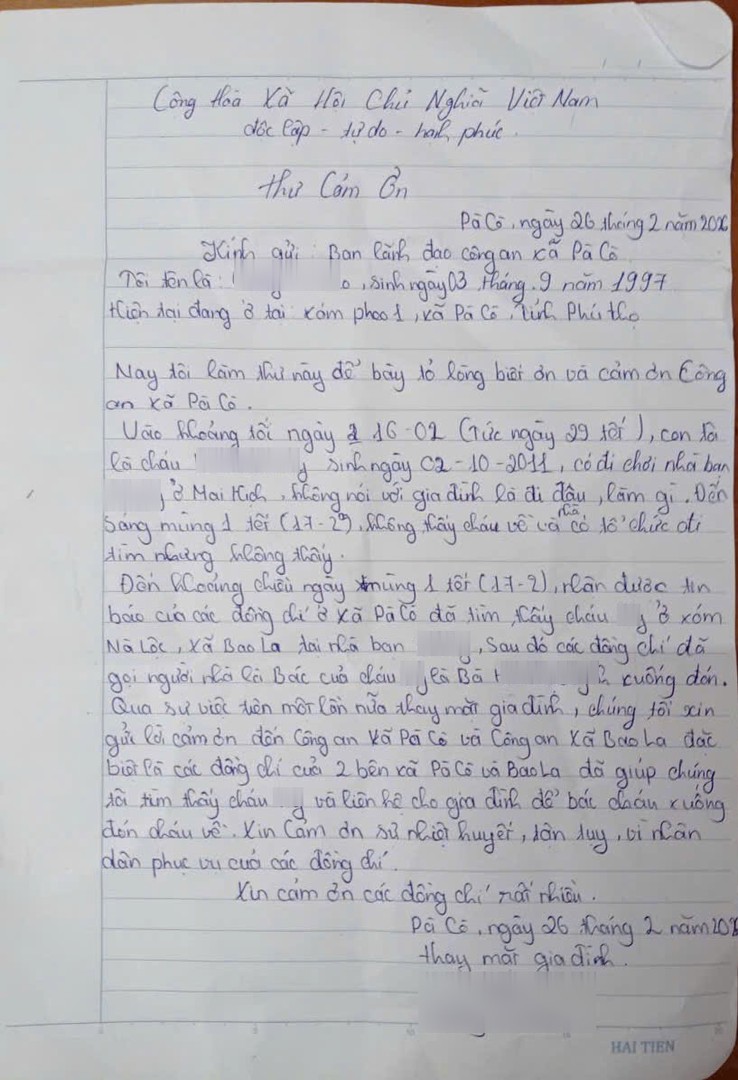 Công Hoà Xã Hội Chủ Nghĩa Việt Nam
độc lập - tự do - hạnh phúc.
Thư Cảm Ơn
Pà Cò, ngày 26 tháng 2 năm 202
Kính gửi: Ban lãnh đạo công an xã Pà Cò
Tôi tên là: , sinh ngày 03 tháng. 9 năm 1997
Hiện tại đang ở tại: xóm phoo 1, xã Pà Cò, tỉnh Phú thọ
Nay tôi làm thư này để bày tỏ lòng biết ơn và cảm ơn Công
an xã Pà Cò.
Vào khoảng tối ngày 16-02 (Tức ngày 29 tết), con tôi
là cháu sinh ngày 02-10-2011, có đi chơi nhà bạn
ở Mai Hịch, không nói với gia đình là đi đâu, làm gì. Đến
sáng mùng 1 tết (17-2), không thấy cháu về nhà và có tổ chức đi
tìm nhưng không thấy.
Đến khoảng chiều ngày mùng 1 tết (17-2), nhận được tin
báo của các đồng chí ở xã Pà Cò đã tìm thấy cháu ở xóm
Nà Lộc, xã Bao La tại nhà bạn , sau đó các đồng chí đã
gọi người nhà là Bác của cháu là Bà xuống đón.
Qua sự việc trên một lần nữa thay mặt gia đình, chúng tôi xin
gửi lời cảm ơn đến Công an xã Pà Cò và Công an xã Bao La đặc
biệt là các đồng chí của 2 bên xã Pà Cò và Bao La đã giúp chúng
tôi tìm thấy cháu và liên hệ cho gia đình để bác cháu xuống
đón cháu về. Xin cảm ơn sự nhiệt huyết, tận tụy, vì nhân
dân phục vụ của các đồng chí.
Xin cảm ơn các đồng chí rất nhiều.
Pà Cò, ngày 26 tháng 2 năm 202
thay mặt gia đình.
HAI TIEN